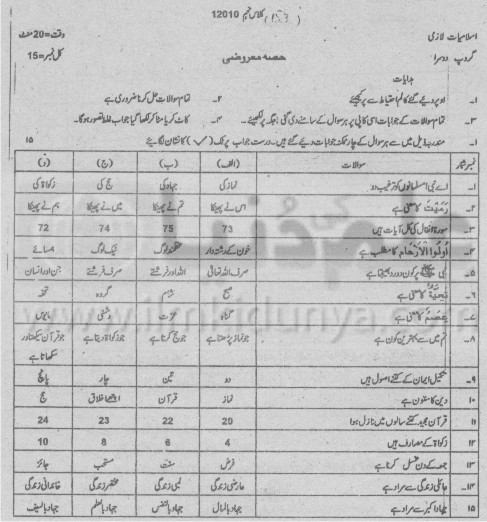 12010 کلاس نہم (153)
اسلامیات لازمی وقت=20منٹ
گروپ دوسرا حصہ معروضی کل نمبر=15
ہدایات
۱۔ اوپر دیئے گئے کالم احتیاط سے پر کیجئے ۲۔ تمام سوالات حل کرنا ضروری ہے
۳۔ تمام سوالات کے جوابات اسی کاپی پر ہر سوال کے سامنے دی گئی جگہ پر لکھیئے۔ ۴۔ کاٹ کر یا مٹا کر لکھا گیا جواب غلط تصور ہوگا۔
۱۔ مندرجہ ذیل میں سے ہر سوال کے چار ممکنہ جوابات دیئے گئے ہیں۔ درست جواب پر ٹک (✓) کا نشان لگایئے ۱۵
نمبر شمار سوالات (الف) (ب) (ج) (د)
۱۔ اے نبی! مسلمانوں کو ترغیب دو نماز کی جہاد کی حج کی زکوٰۃ کی
۲۔ رَمَيْتَ کا معنی ہے اس نے پھینکا تم نے پھینکا میں نے پھینکا ہم نے پھینکا
۳۔ سورۃ انفال کی کل آیات ہیں 73 75 74 72
۴۔ اُولُوا الْاَرْحَام کا مطلب ہے خون کے رشتہ دار عقلمند لوگ نیک لوگ ہمسائے
۵۔ نبی ﷺ پر کون درود بھیجتا ہے صرف اللہ تعالٰی اللہ اور فرشتے صرف فرشتے جن اور انسان
۶۔ کا معنی ہے صبح شام گروہ تحفہ
۷۔ کا معنی ہے گناہ عزت دشمنی
۸۔ تم میں سے بہترین کون ہے جو نماز پڑھتا ہے جو حج کرتا ہے جو زکوٰۃ دیتا ہے جو قرآن سیکھتا اور
سکھاتا ہے
۹۔ تکمیل ایمان کے کتنے اصول ہیں دو تین چار پانچ
۱۰ دین کا ستون ہے نماز قرآن اچھا اخلاق حج
۱۱ قرآن مجید کتنے سالوں میں نازل ہوا 20 22 23 24
۱۲ زکوٰۃ کے مصارف ہیں 4 6 8 10
۱۳ جمعہ کے دن غسل کرنا ہے فرض سنت مستحب جائز
۱۴۔ عائلی زندگی سے مراد ہے عارضی زندگی لمبی زندگی مختصر زندگی خاندانی زندگی
۱۵ جہاد اکبر سے مراد ہے جہاد بالمال جہاد بالنفس جہاد بالعلم جہاد بالسیف
www.ilmkidunya.com